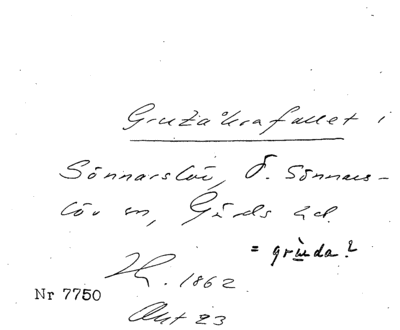 Gružåkrafallet i
Sönnarslöv, Ö. Sönnars-
löv sn, Gärds hd.
= grùda?
1862.
Nr 7750
Akt 23